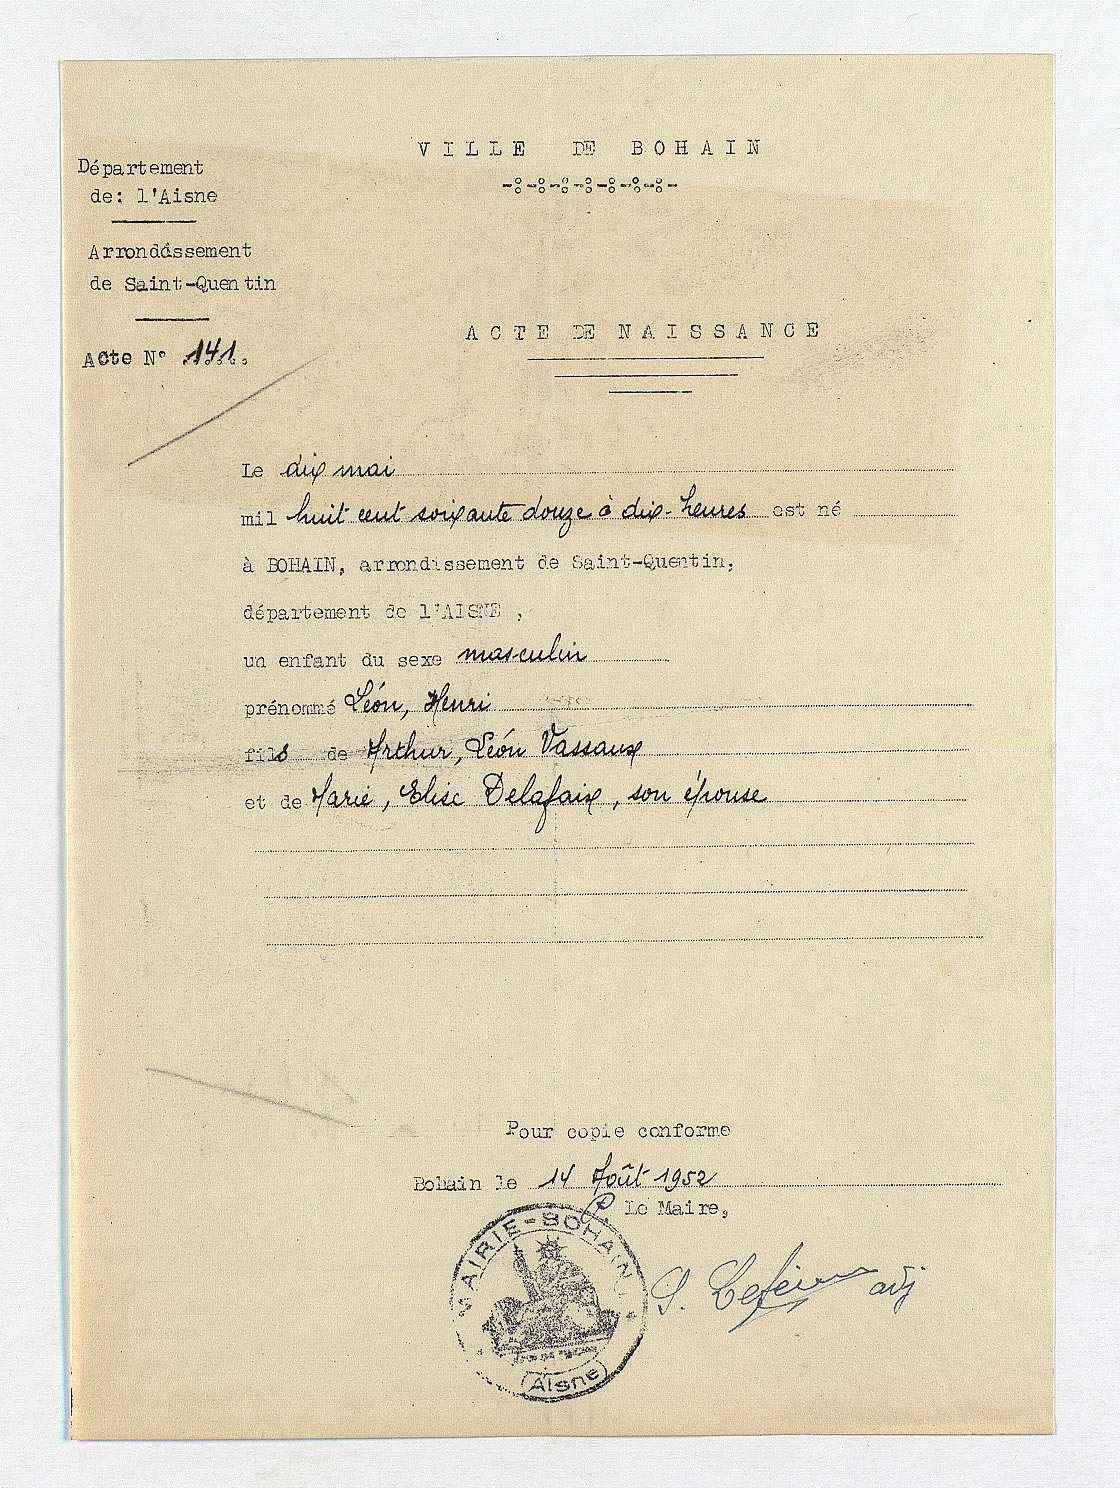 VILLE DE BOHAIN
Département
de: l'Aisne
Arrondissement
de Saint-Quentin
ACTE DE NAISSANCE
Acte N° 141
Le dix mai
mil huit cent soixante douze à dix-heures est né
à BOHAIN, arrondissement de Saint-Quentin,
département de l'AISNE,
un enfant du sexe masculin
prénommé Léon, Henri
fils de Arthur, Léon Vassaux
et de Marie, Elise Delafaix, son épouse
Pour copie conforme
Bohain le 14 Août 1952
P. Le Maire,
MAIRIE-BOHAIN
(Aisne)
adj